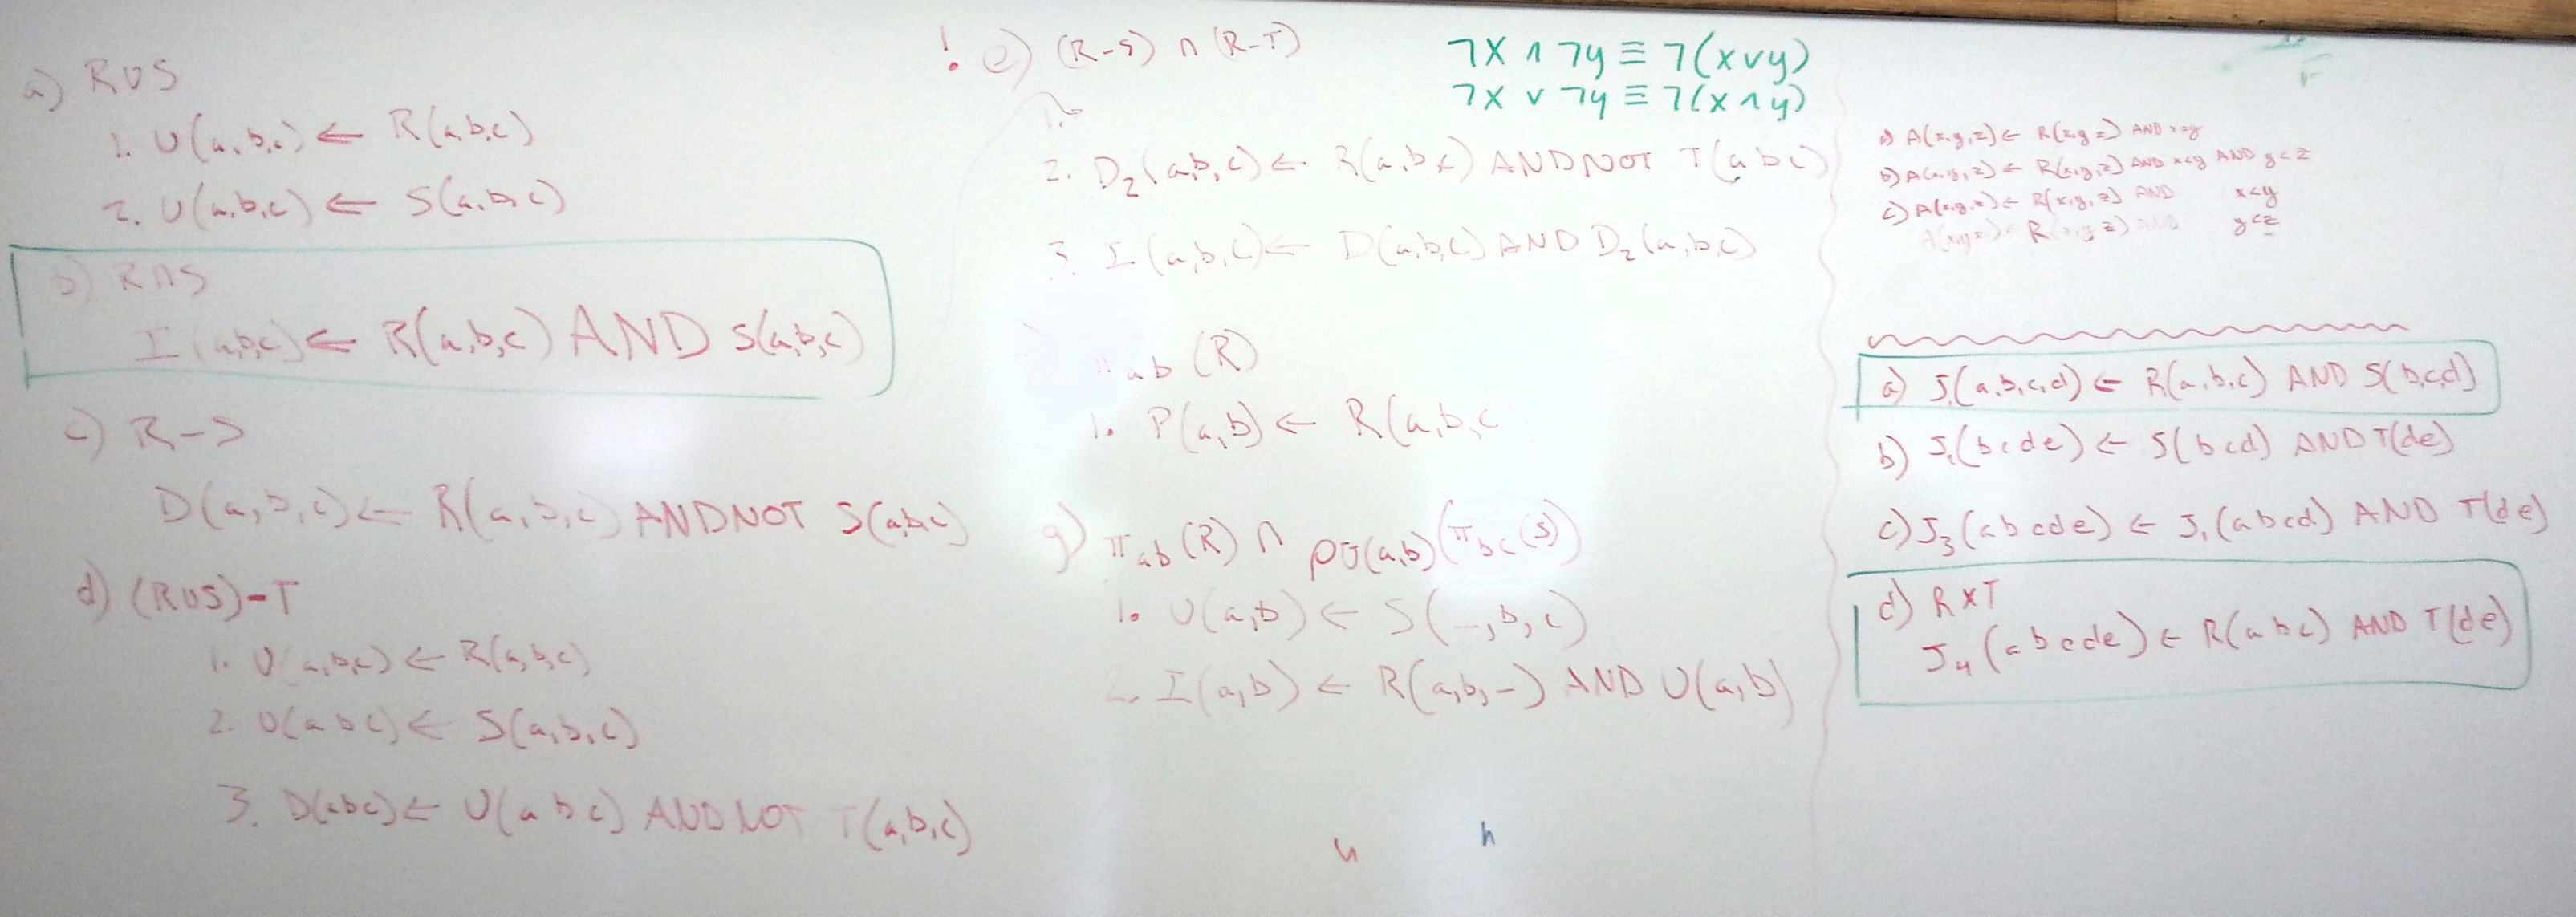 a) R∪S
1. U(a,b,c) ← R(a,b,c)
2. U(a,b,c) ← S(a,b,c)
b) R∩S
I(a,b,c) ← R(a,b,c) AND S(a,b,c)
c) R-S
D(a,b,c) ← R(a,b,c) AND NOT S(a,b,c)
d) (R∪S)-T
1. U(a,b,c) ← R(a,b,c)
2. U(a b c) ← S(a,b,c)
3. D(abc) ← U(a b c) AND NOT T(a,b,c)
! e) (R-S) ∩ (R-T)
1.
2. D₂(a,b,c) ← R(a,b,c) AND NOT T(a b c)
3. I(a,b,c) ← D(a,b,c) AND D₂(a,b,c)
π ab (R)
1. P(a,b) ← R(a,b,c
g) π ab (R) ∩ ρU(a,b)(π bc (S))
1. U(a,b) ← S(_,b,c)
2. I(a,b) ← R(a,b,-) AND U(a,b)
¬X ∧ ¬y ≡ ¬(x∨y)
¬X ∨ ¬y ≡ ¬(x∧y)
a) A(x,y,z) ← R(x,y,z) AND x=y
b) A(x,y,z) ← R(x,y,z) AND x<y AND y<z
c) A(x,y,z) ← R(x,y,z) AND x<y
A(x,y,z) ← R(x,y,z) AND y<z
a) J₁(a,b,c,d) ← R(a,b,c) AND S(b,c,d)
b) J₁(bcde) ← S(bcd) AND T(de)
c) J₃(abcde) ← J₁(abcd) AND T(de)
d) R×T
J₄(abcde) ← R(abc) AND T(de)
h